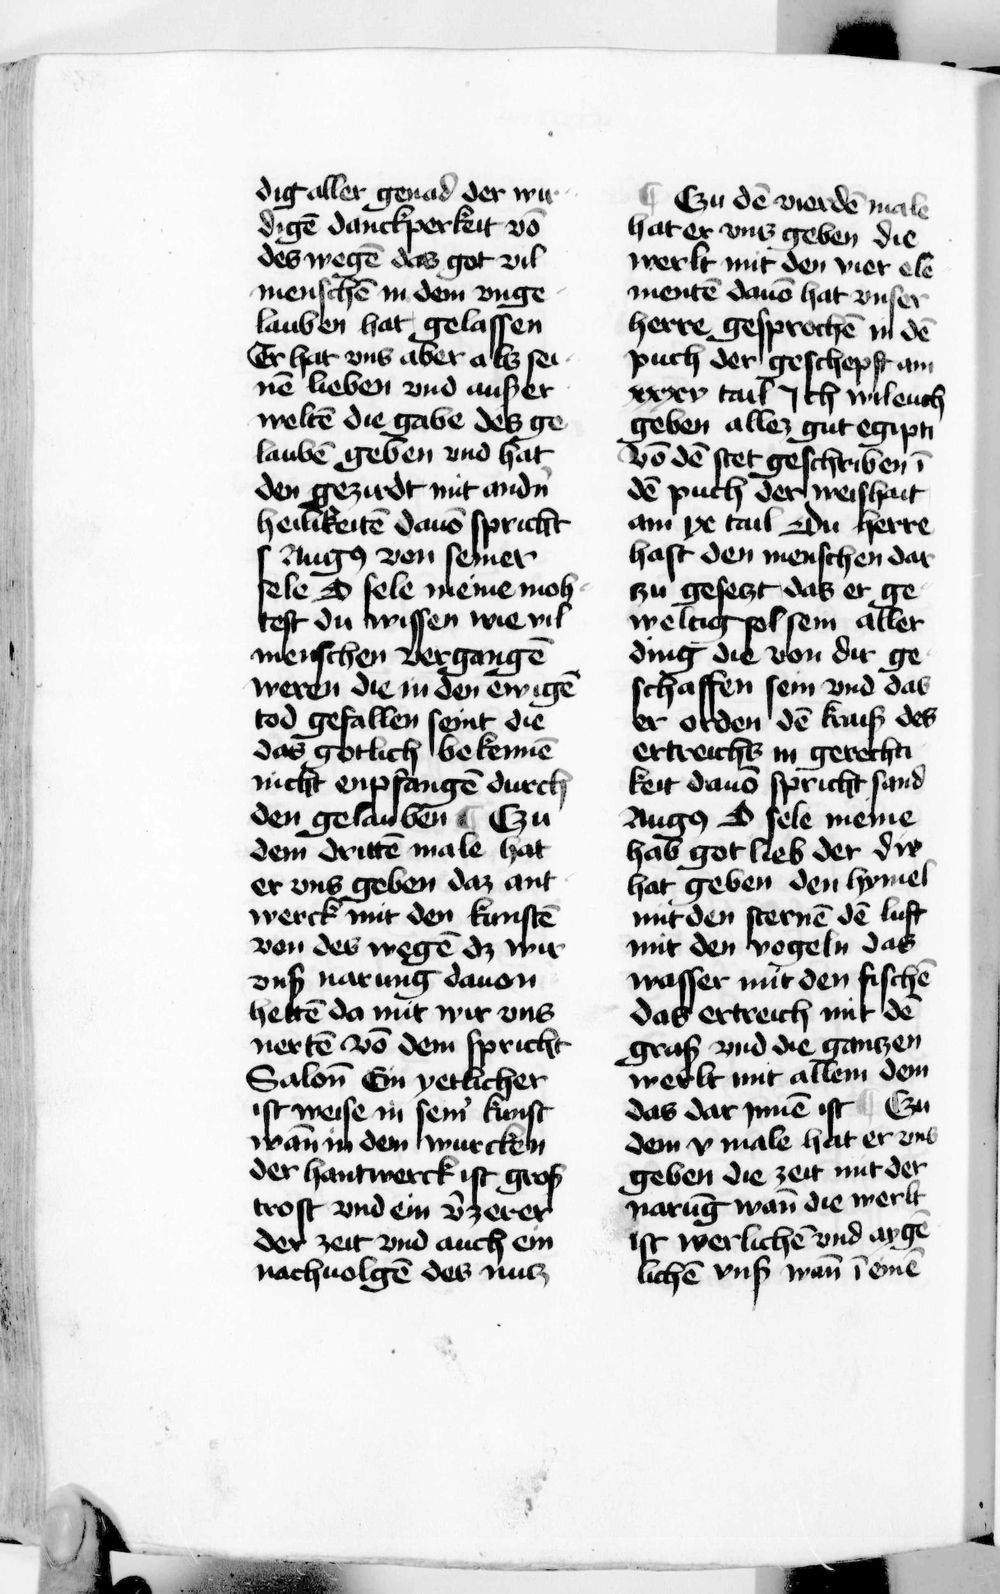 dig aller genad der wir-
digē danckperkeit vō
des wegē das got vil
menschē in dem vnge-
lauben hat gelassen
Er hat vns aber alz sei-
nē lieben vnd außer-
weltē die gabe des ge-
laubē geben vnd hat
den gezirdt mit andn̄
heilikeitē dauō spricht
s Augꝯ von seiner
sele O sele meine moh-
test du wissen wie vil
menschen vergangē
weren die in den ewigē
tod gefallen seint die
das gotlich bekennē
nicht enpfangē durch
den gelauben ¶ Czu
dem drittē male hat
er vns geben daz ant-
werck mit den kunstē
von des wegē dz wir
vnß narung dauon
hettē da mit wir vns
nertē Vō dem spricht
Salon̄ Ein yetlicher
ist weise in sein̾ kunst
wan̄ in dem wurcken
der hantwerck ist groß
trost vnd ein v̄zerer
der zeit vnd auch ein
nachuolgē des nutz
¶ Czu dē vierdē male
hat er vns geben die
werlt mit den vier ele-
mentē dauō hat vnser
herre gesprochē in dē
puch der geschepft am
xxxxv tail Ich wil euch
geben allez gut egipti
Vō dē stet geschriben ī
dē puch der weishait
am ix tail Du herre
hast den menschen dar
zu gesetzt das er ge-
weltig sol sein aller
ding die von dir ge-
schaffen sein vnd das
er orden dē kraiß des
ertreichs in gerechti-
keit dauō spricht sand
Augꝯ O sele meine
hab got lieb der dir
hat geben den hymel
mit den sternē dē luft
mit den vogeln das
wasser mit den fischē
das ertreich mit dē
graß vnd die gantzen
werlt mit allem dem
das dar ynnē ist ¶ Czu
dem v male hat er vns
geben die zeit mit der
narūg wan̄ die werlt
ist werlichē vnd aygē-
lichē vnß wan̄ ī einē